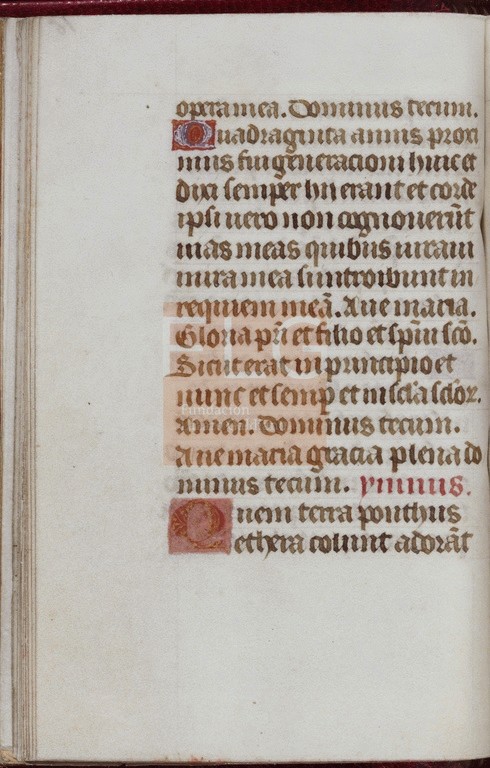 opera mea. Dominus tecum.
Quadraginta annis proxi
mus fui generacioni huic et
dixi semper hii erant et corde
ipsi vero non cognoverūt
vias meas quibus iuravi
in ira mea si introibunt in
requiem meā. Ave maria.
Gloria pri et filio et spiui sco.
Sicut erat in principio et
nunc et semp et in scla sclor.
Amen. Dominus tecum.
Ave maria gracia plena do
minus tecum. ymnus.
Quem terra ponthus
ethera colunt adorāt
FLG
Fundación